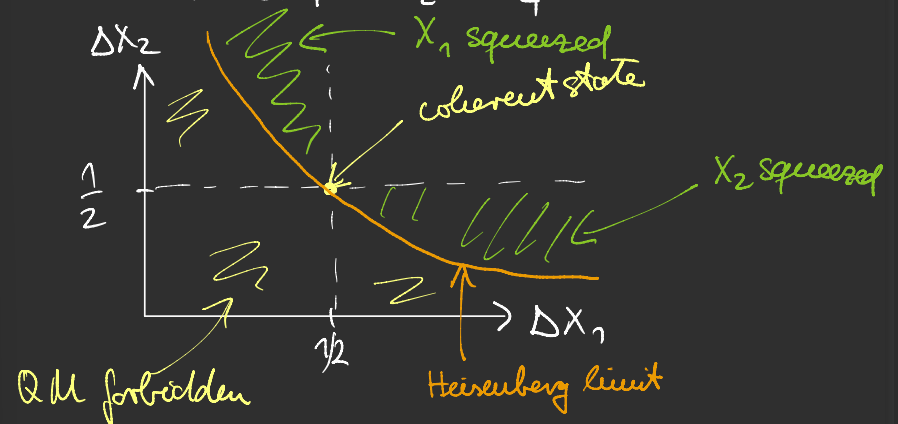 X₁ squeezed
ΔX₂
coherent state
X₂ squeezed
1/2
ΔX₁
1/2
QM forbidden
Heisenberg limit